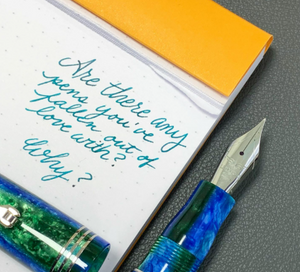 Are there any
pens you've
fallen out of
love with?
Why?